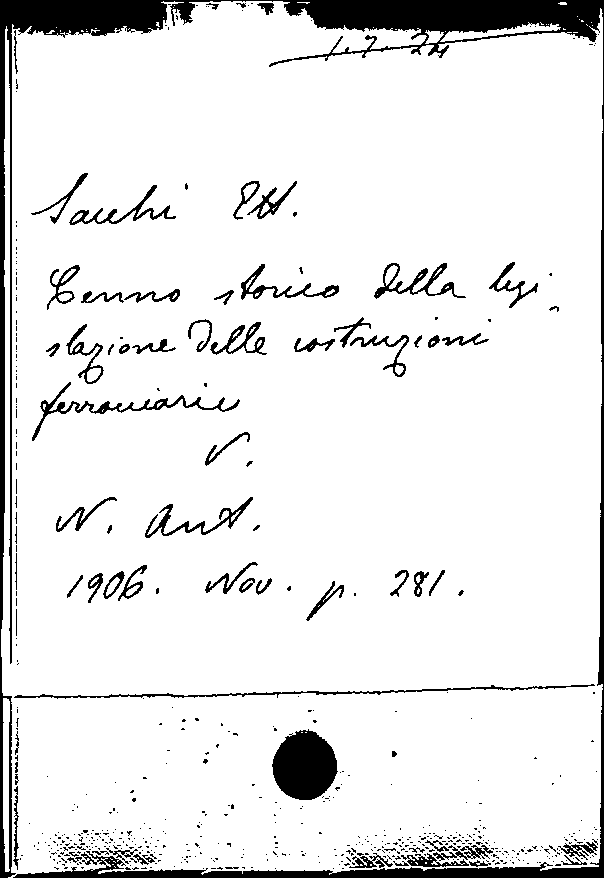 1.7.24
Sacchi Ett.
Cenno storico della legi-
slazione delle costruzioni
ferroviarie
V.
N. Ant.
1906. Nov. p. 281.